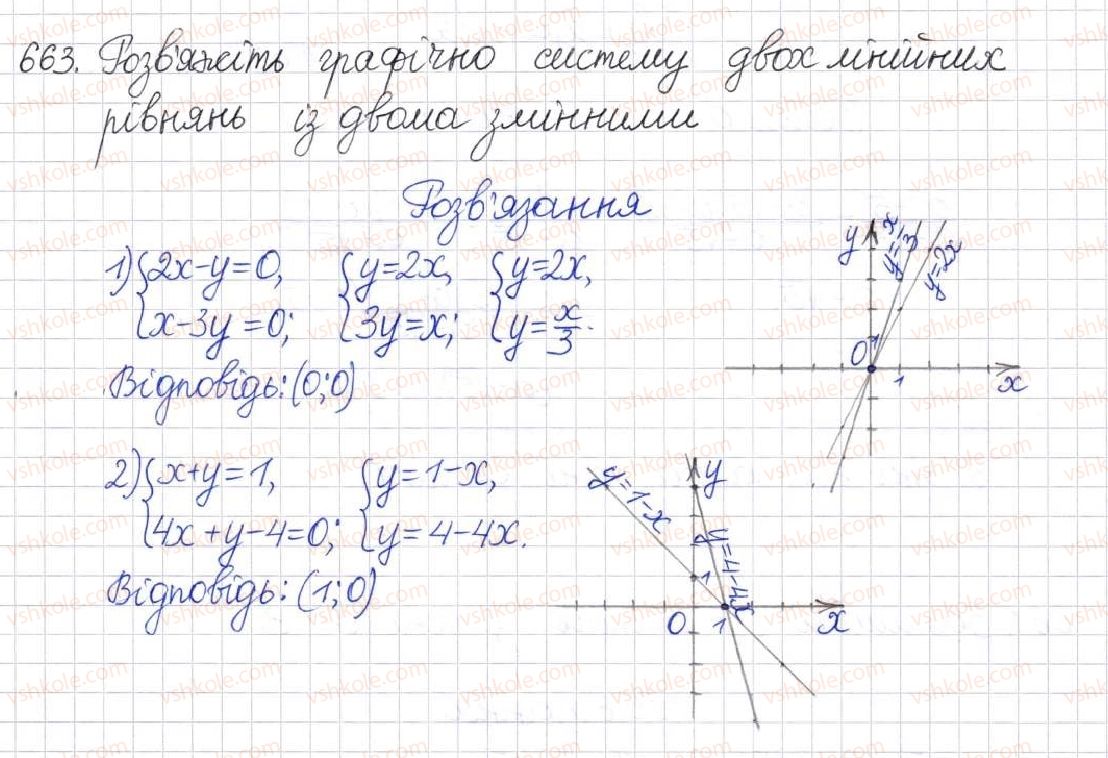 663. Розв'яжіть графічно систему двох лінійних
рівнянь із двома змінними
Розв'язання
1) {2x-y=0, {y=2x, {y=2x,
x-3y=0; 3y=x; y=x/3.
Відповідь: (0;0)
y y=x/3 y=2x
1
0 1 x
2) {x+y=1, {y=1-x,
4x+y-4=0; y=4-4x.
Відповідь: (1;0)
y=1-x y
y=4-4x
1
0 1 x
vshkole.com